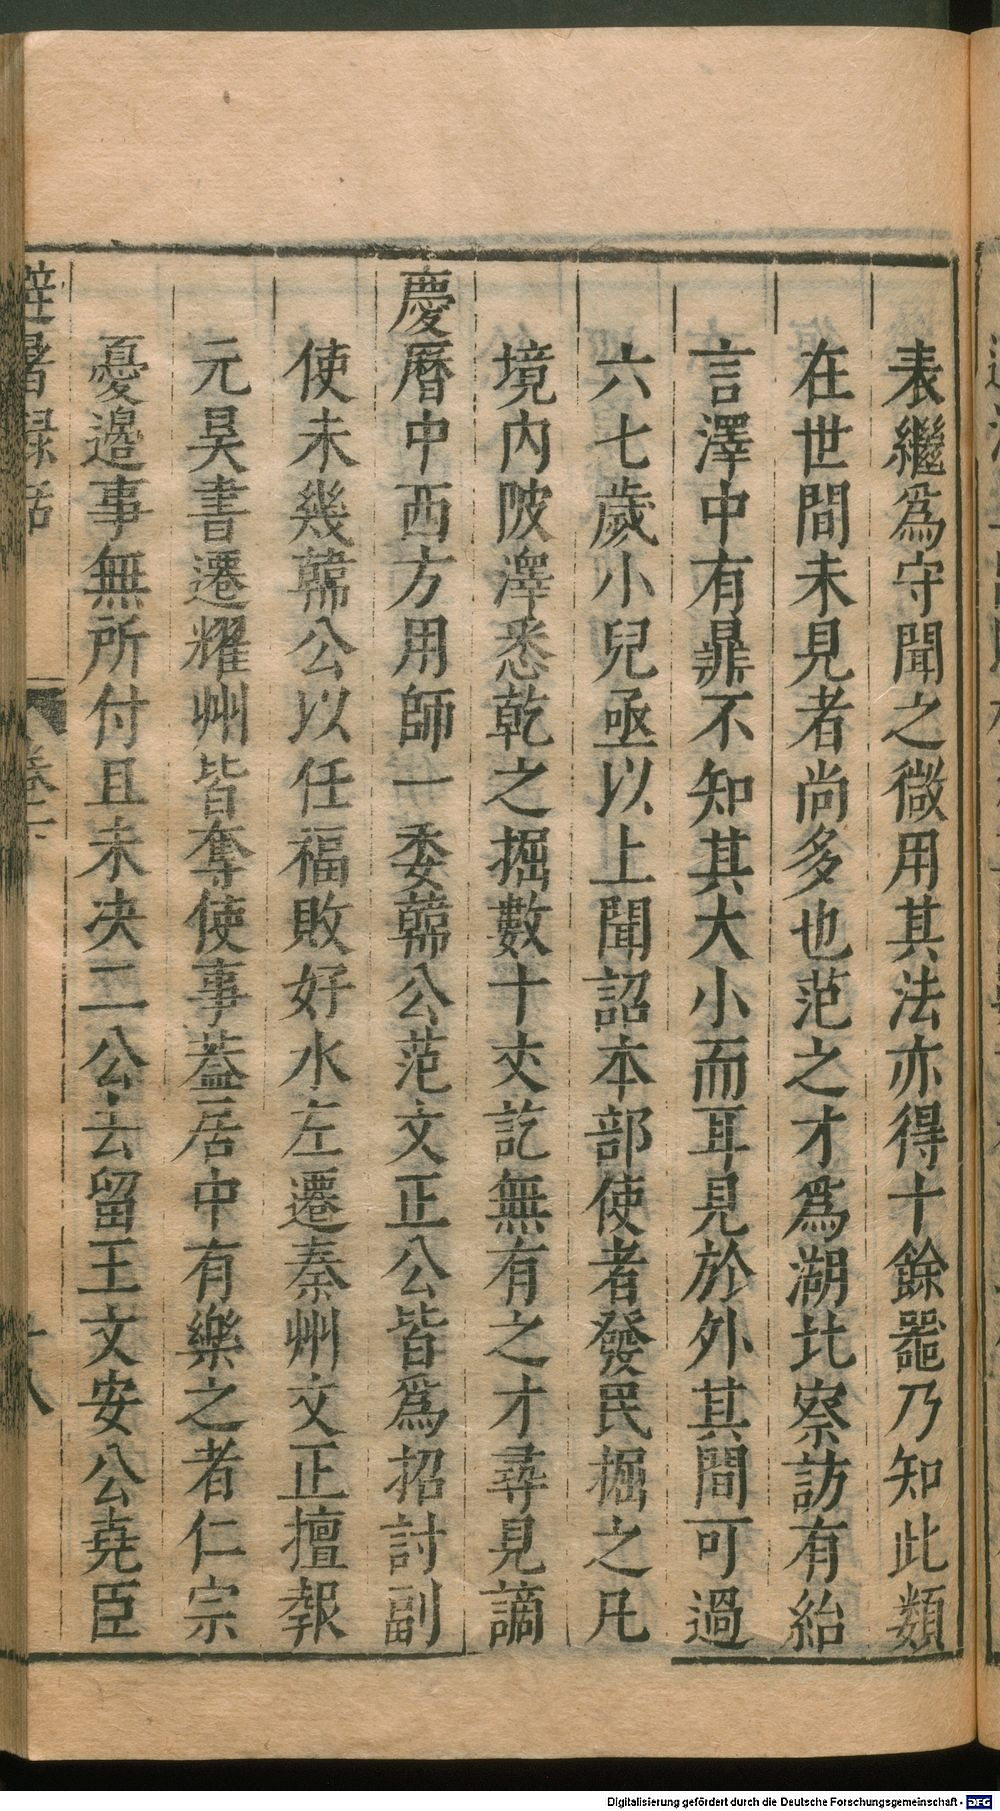 表繼爲守聞之微用其法亦得十餘噐乃知此類
在世間未見者尚多也范之才爲湖北察訪有紿
言澤中有鼎不知其大小而耳見於外其間可過
六七歲小兒亟以上聞詔本部使者發民掘之凡
境內陂澤悉乾之掘數十丈訖無有之才尋見謫
慶曆中西方用師一委韓公范文正公皆爲招討副
使未幾韓公以任福敗好水左遷秦州文正擅報
元昊書遷耀州皆奪使事葢居中有樂之者仁宗
憂邊事無所付且未決二公去留王文安公堯臣
避暑錄話
卷下
十八
Digitalisierung gefördert durch die Deutsche Forschungsgemeinschaft - DFG